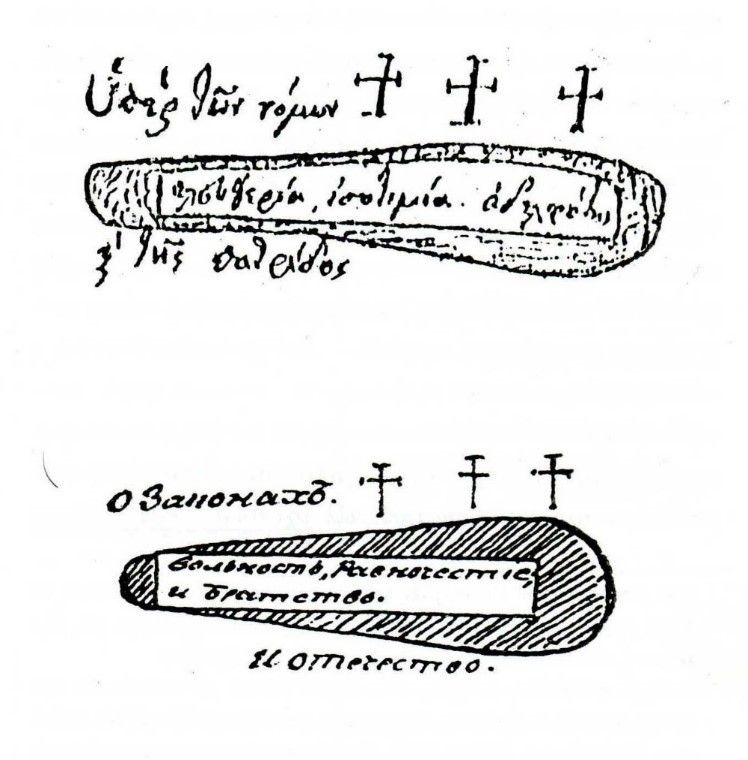 Ὑπὲρ τῶν νόμων
ἐλευθερία, ἰσοτιμία. ἀδελφότης
ϗ τῆς πατρίδος
О Законахъ.
Вольность, Равночестіе,
и братство.
И отечество.